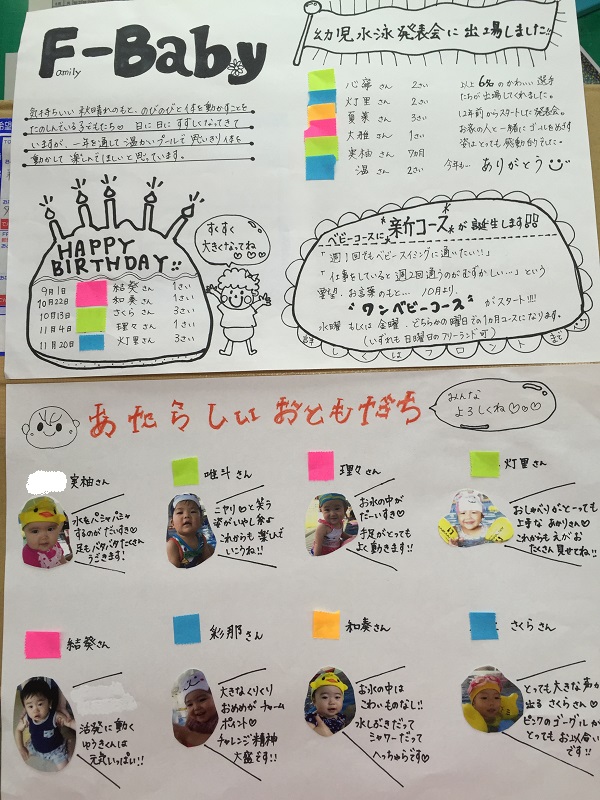 F-Baby
amily
気持ちいい秋晴れのもと、のびのびと体を動かすことを
たのしんでいる子どもたち♡ 日に日にすずしくなってきて
いますが、一年を通して温かいプールで思いきり体を
動かして楽しんでほしいと思っています。
HAPPY
BIRTHDAY!!
9月1日 結葵さん 1さい
10月22日 和奏さん 1さい
10月13日 さくらさん 3さい
11月4日 理々さん 1さい
11月20日 灯里さん 3さい
すくすく
大きくなってね♡
幼児水泳発表会に出場しました!!
心寧さん 2さい
灯里さん 2さい
夏葉さん 3さい
大雅さん 1さい
実柚さん 7ヵ月
温さん 2さい
以上6名のかわいい選手
たちが出場してくれました。
12年前からスタートした発表会。
お家の人と一緒にゴールをめざす
姿はとっても感動的でした。
今年も… ありがとう
ベビーコースに"新コース"が誕生します!!
「週1回でもベビースイミングに通いたい!!」
「仕事をしていると週2回通うのがむずかしい…」という
要望・お言葉のもと… 10月より、
"ワンベビーコース"がスタート!!!
水曜もしくは金曜、どちらかの曜日での1ヵ月コースになります。
(いずれも日曜日のフリーランド可)
詳しくはフロントまで
あたらしいおともだち
みんな
よろしくね♡♡♡
実柚さん
水もパシャパシャ
するのがだいすき♡
足もバタバタたくさん
うごきます!
唯斗さん
ニヤリ♡と笑う
姿がいやし系♪
これからも楽しんで
いこうね!!
理々さん
お水の中が
だーいすき♡
手足がとっても
よく動きます!!
灯里さん
おしゃべりがとーっても
上手なあかりさん♡
これからもえがお
たくさん見せてね!!
結葵さん
活発に動く
ゆうきくんは
元気いっぱい!!
彩那さん
大きなくりくり
おめめがチャーム
ポイント♡
チャレンジ精神
大盛です!!
和奏さん
お水の中は
こわいものなし!!
水しぶきだって
シャワーだって
へっちゃらです♡
さくらさん
とっても大きな声が
出るさくらさん♡
ピンクのゴーグルが
とってもお似合い
です!!